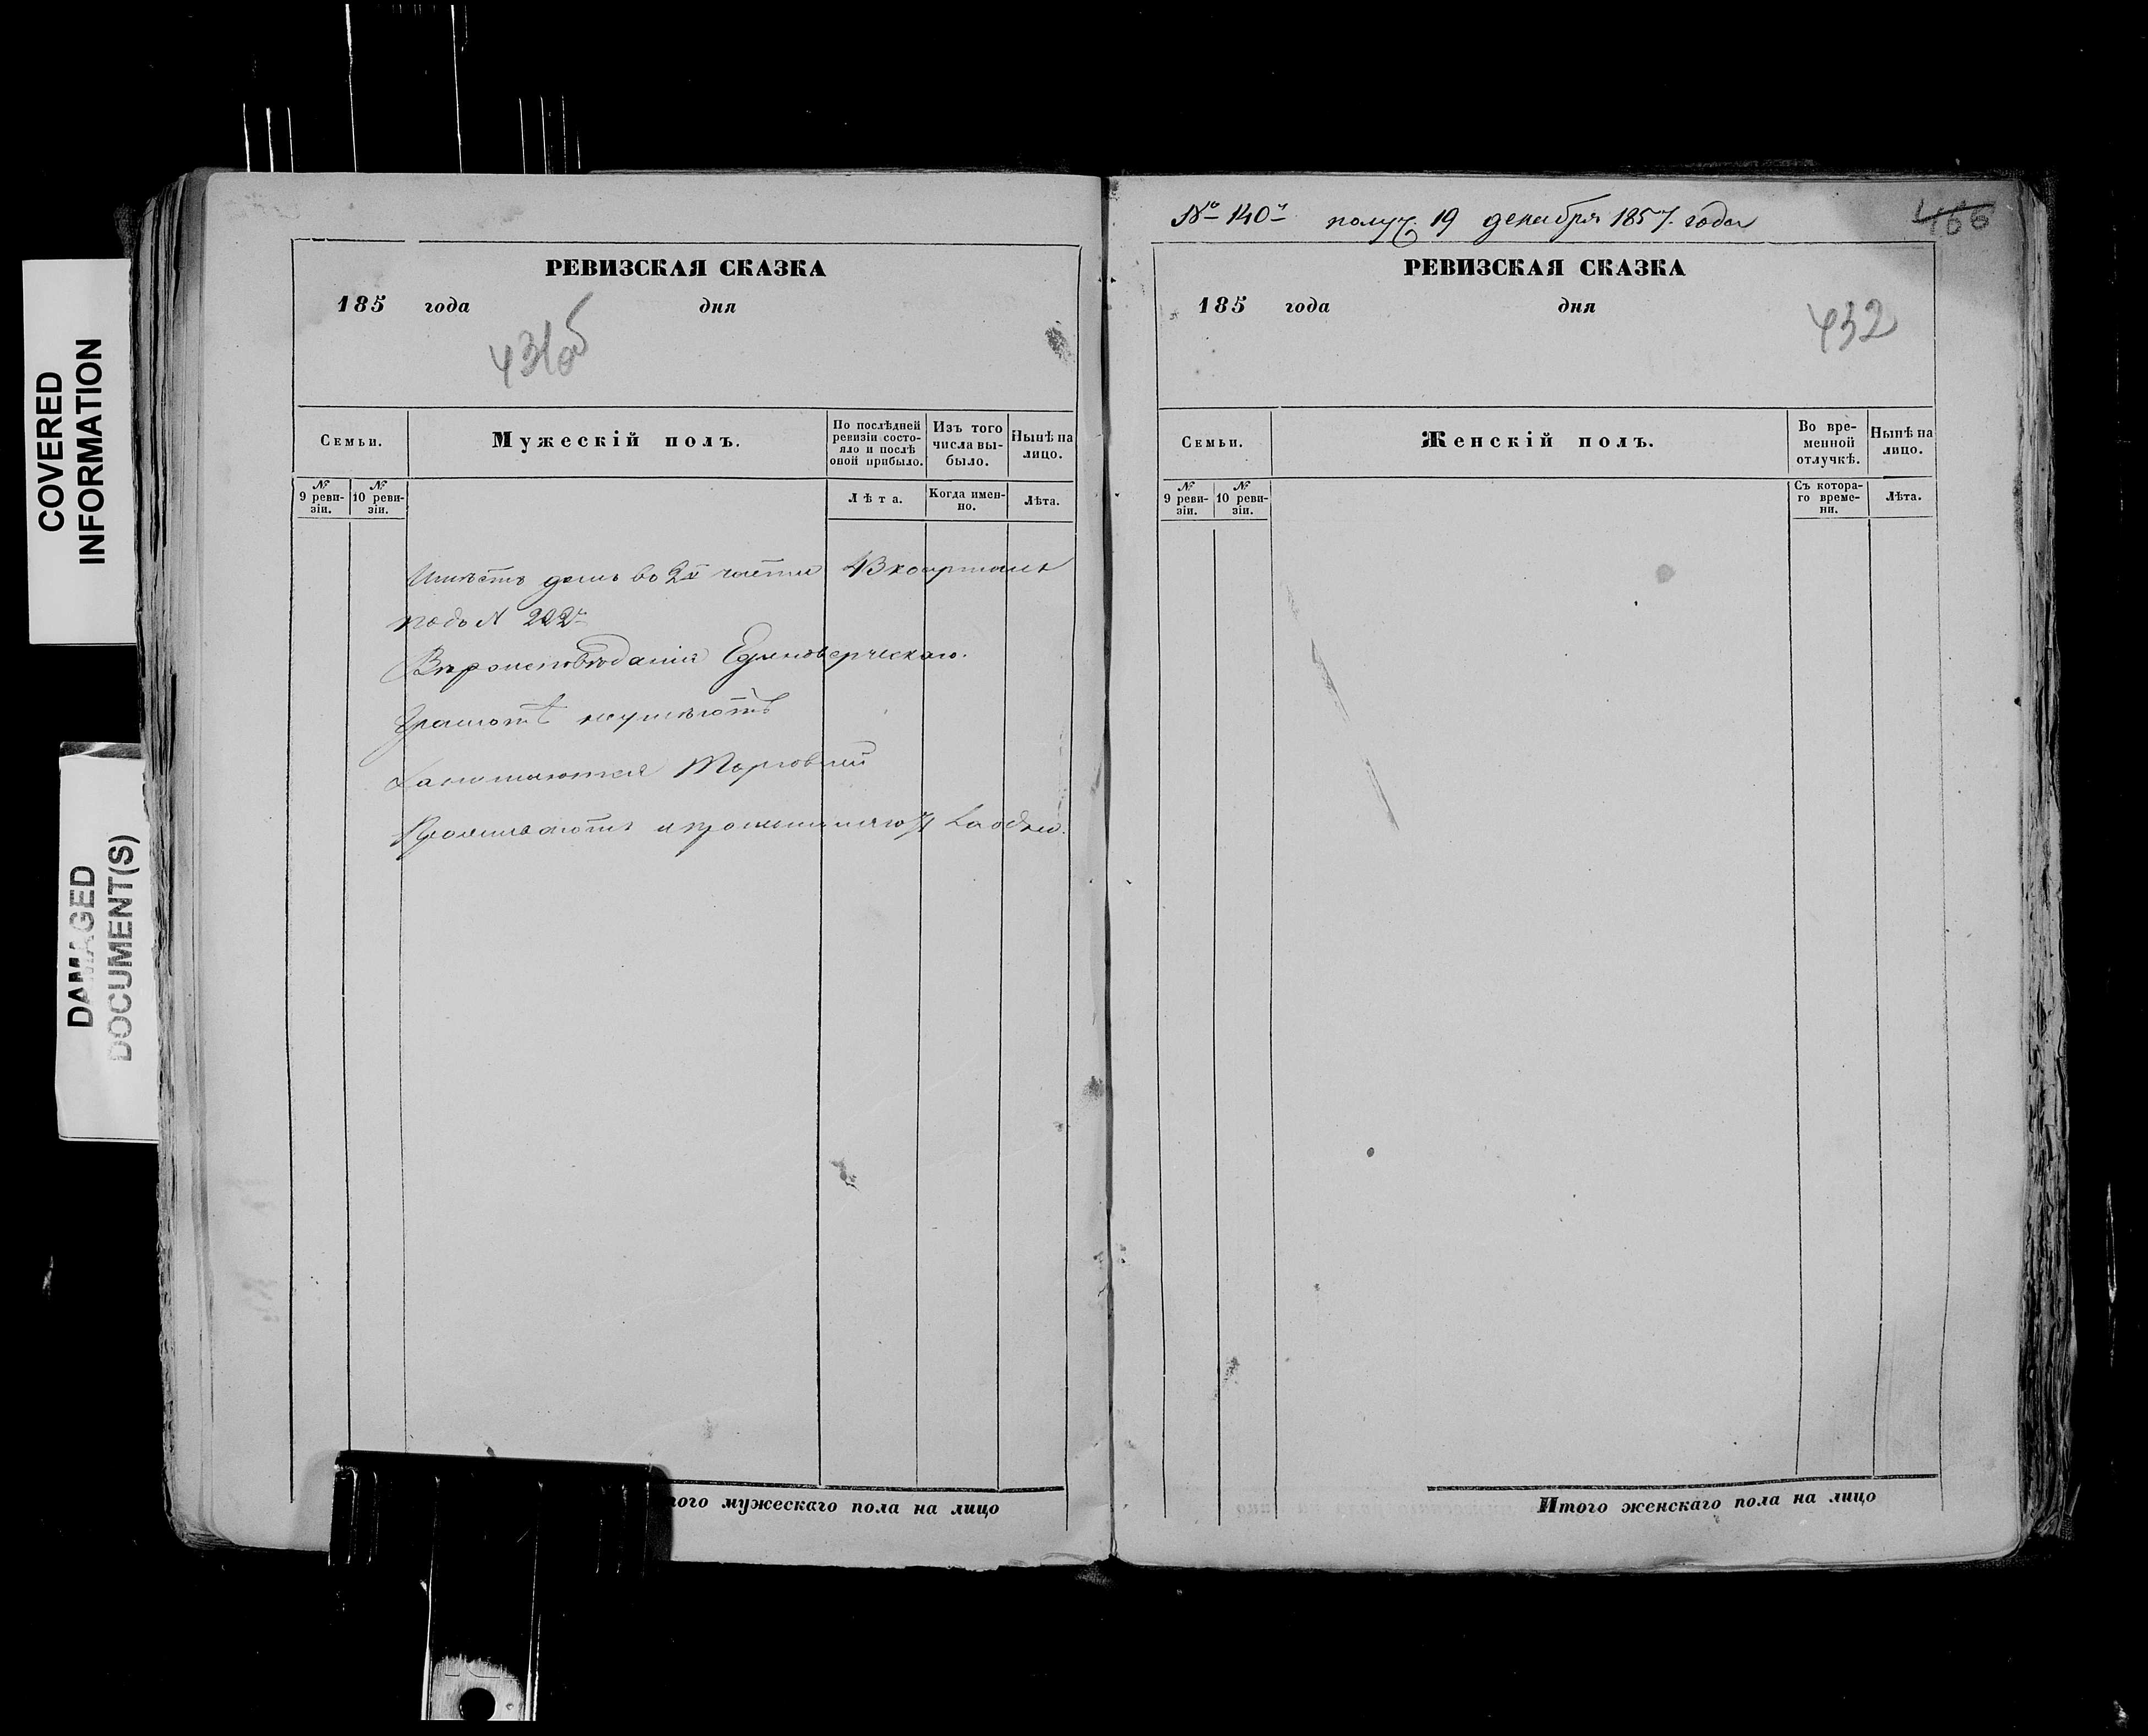 COVERED
INFORMATION
DAMAGED
DOCUMENT(S)
РЕВИЗСКАЯ СКАЗКА
185 года дня
431об
Семьи.
Мужескій полъ.
По послѣдней ревизіи состо-
яло и послѣ
оной прибыло.
Изъ того
числа вы-
было.
Нынѣ на
лицо.
№
9 реви-
зіи.
№
10 реви-
зіи.
Лѣта.
Когда имен-
но.
Лѣта.
Имѣетъ домъ во 2й части 13 квартала
подъ № 222м
Вѣроисповѣданія Единоверческаго.
Грамотѣ неумѣютъ
Занимаются Торговлей
Проживаютъ
Итого мужескаго пола на лицо
№ 140й получ. 19 декабря 1857. года
466
РЕВИЗСКАЯ СКАЗКА
185 года дня
432
Семьи.
Женскій полъ.
Во вре-
менной
отлучкѣ.
Нынѣ на
лицо.
№
9 реви-
зіи.
№
10 реви-
зіи.
Съ котора-
го време-
ни.
Лѣта.
Итого женскаго пола на лицо